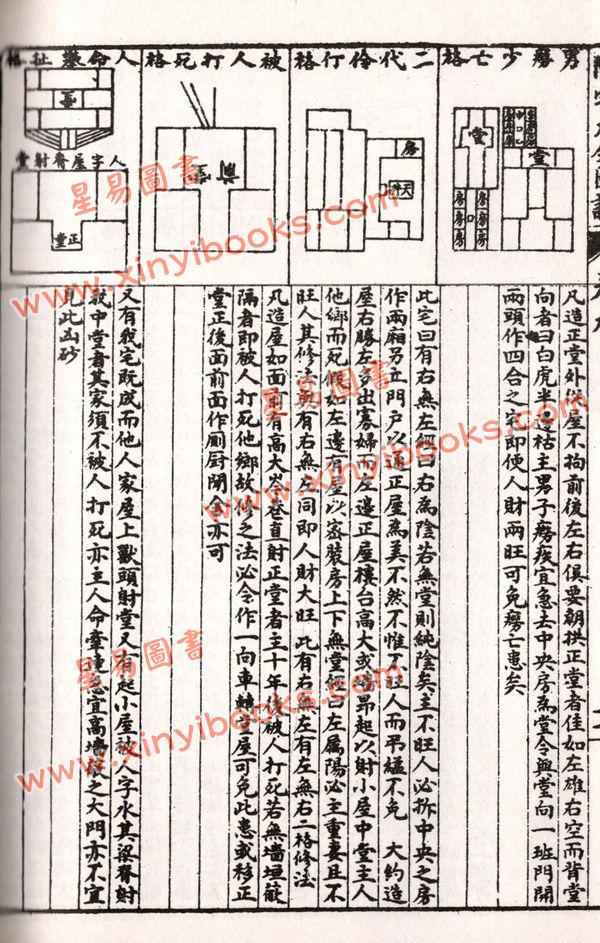 男癆少亡格
二代伶仃格
被人打死格
人命蔡扯格
堂
房
房
房
房
堂
房
天井
人字屋脊射堂
正堂
凡造正堂外從屋不拘前後左右俱要朝拱正堂者佳如左雄右空而背堂
向者曰白虎半邊枯主男子癆疾宜急去中央房為堂令與堂向一班門開
兩頭作四合之宅即使人財兩旺可免癆亡患矣
此宅曰有右無左經曰右為陰若無堂則純陰矣主不旺人必拆中央之房
作兩廂另立門戶以通正屋為美不然不惟不旺人而吊縊不免 大約造
屋右勝左多出寡婦而左邊正屋樓台高大或 昂起以射小屋中堂主人
他鄉而死假如左邊有屋以密裝房上下無堂經曰左屬陽必主重妻且不
旺人其修法 有右無左同即人財大旺 此有右無左有左無右二格修法
凡造屋如面前有高大 巷直射正堂者主十年後被人打死若無墻垣蔽
隔者即被人打死他鄉故修之法必令作一向車轉堂屋可免此患或移正
堂正後面前面作廁廚閒舍亦可
又有我宅既成而他人家屋上獸頭射堂又有起小屋被人字水其梁脊射
我中堂者其家須不被人打死亦主人命牽連 宜高墻 之大門亦不宜
見此凶砂
星易圖書
www.xinyibooks.com
星易圖書
www.xinyibooks.com
星易圖書
www.xinyibooks.com